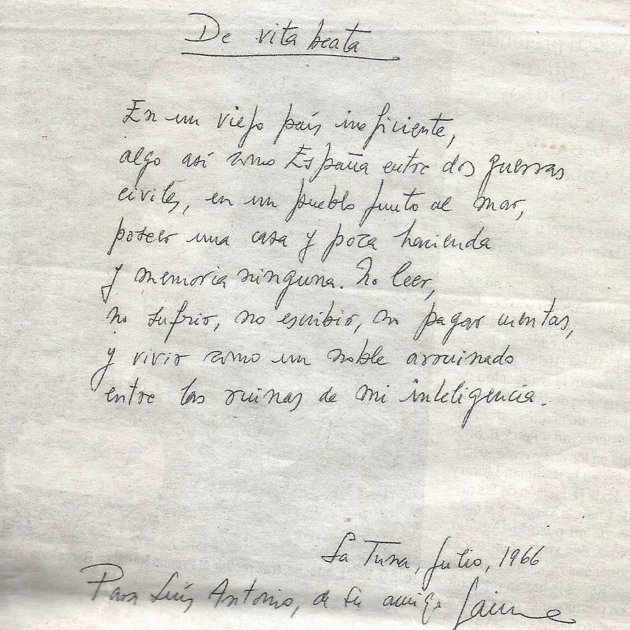 De vita beata
En un viejo país ineficiente,
algo así como España entre dos guerras
civiles, en un pueblo junto al mar,
poseer una casa y poca hacienda
y memoria ninguna. No leer,
no sufrir, no escribir, no pagar cuentas,
y vivir como un noble arruinado
entre las ruinas de mi inteligencia.
La Tuna, Julio, 1966
Para Luis Antonio, de su amigo Jaime